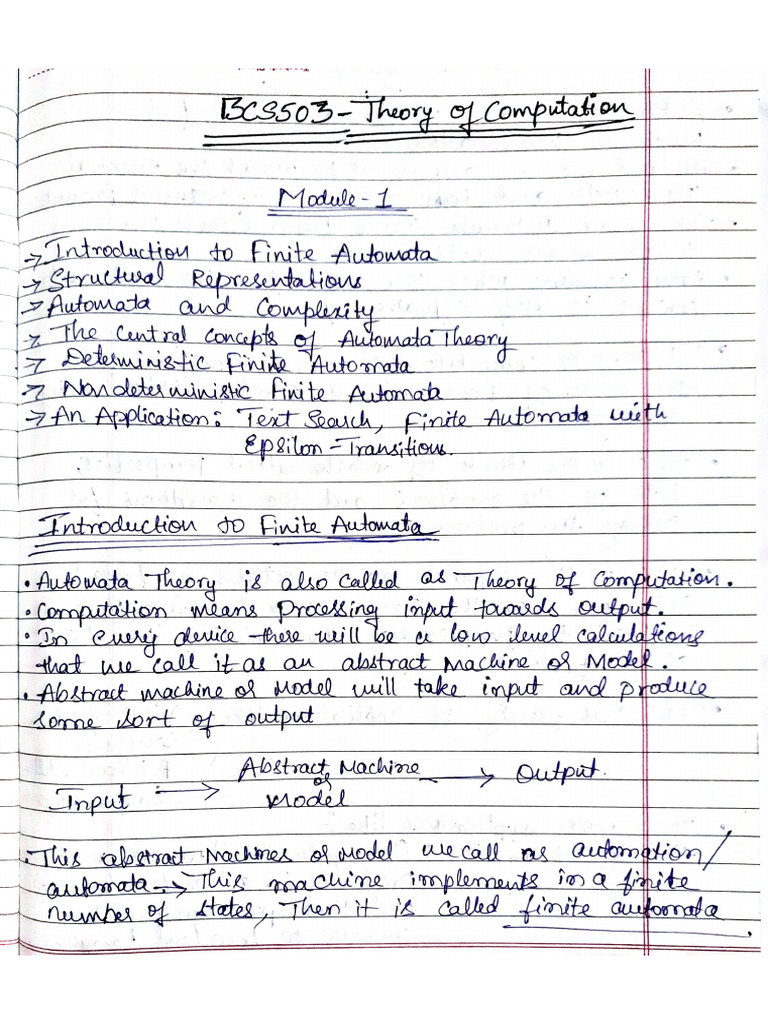 BCS503 - Theory of Computation
Module - 1
→ Introduction to Finite Automata
→ Structural Representations
→ Automata and Complexity
→ The Central Concepts of Automata Theory
→ Deterministic Finite Automata
→ Nondeterministic Finite Automata
→ An Application: Text Search, Finite Automata with
Epsilon - Transitions.
Introduction to Finite Automata
• Automata Theory is also called as Theory of Computation.
• Computation means processing input towards output.
• In every device there will be a low level calculations
that we call it as an abstract machine or Model.
• Abstract machine or model will take input and produce
some sort of output
Input → Abstract Machine or Model → Output.
• This abstract machines or model we call as automation/
automata. → This machine implements in a finite
number of states, Then it is called finite automata.